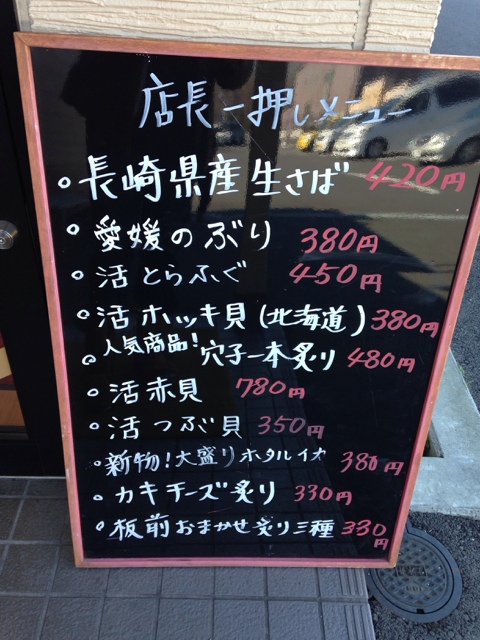 店長一押しメニュー
○長崎県産生さば 420円
○愛媛のぶり 380円
○活とらふぐ 450円
○活ホッキ貝(北海道)380円
○人気商品!穴子一本炙り 480円
○活赤貝 780円
○活つぶ貝 350円
○新物!大盛りホタルイカ 380円
○カキチーズ炙り 330円
○板前おまかせ炙り三種 330円